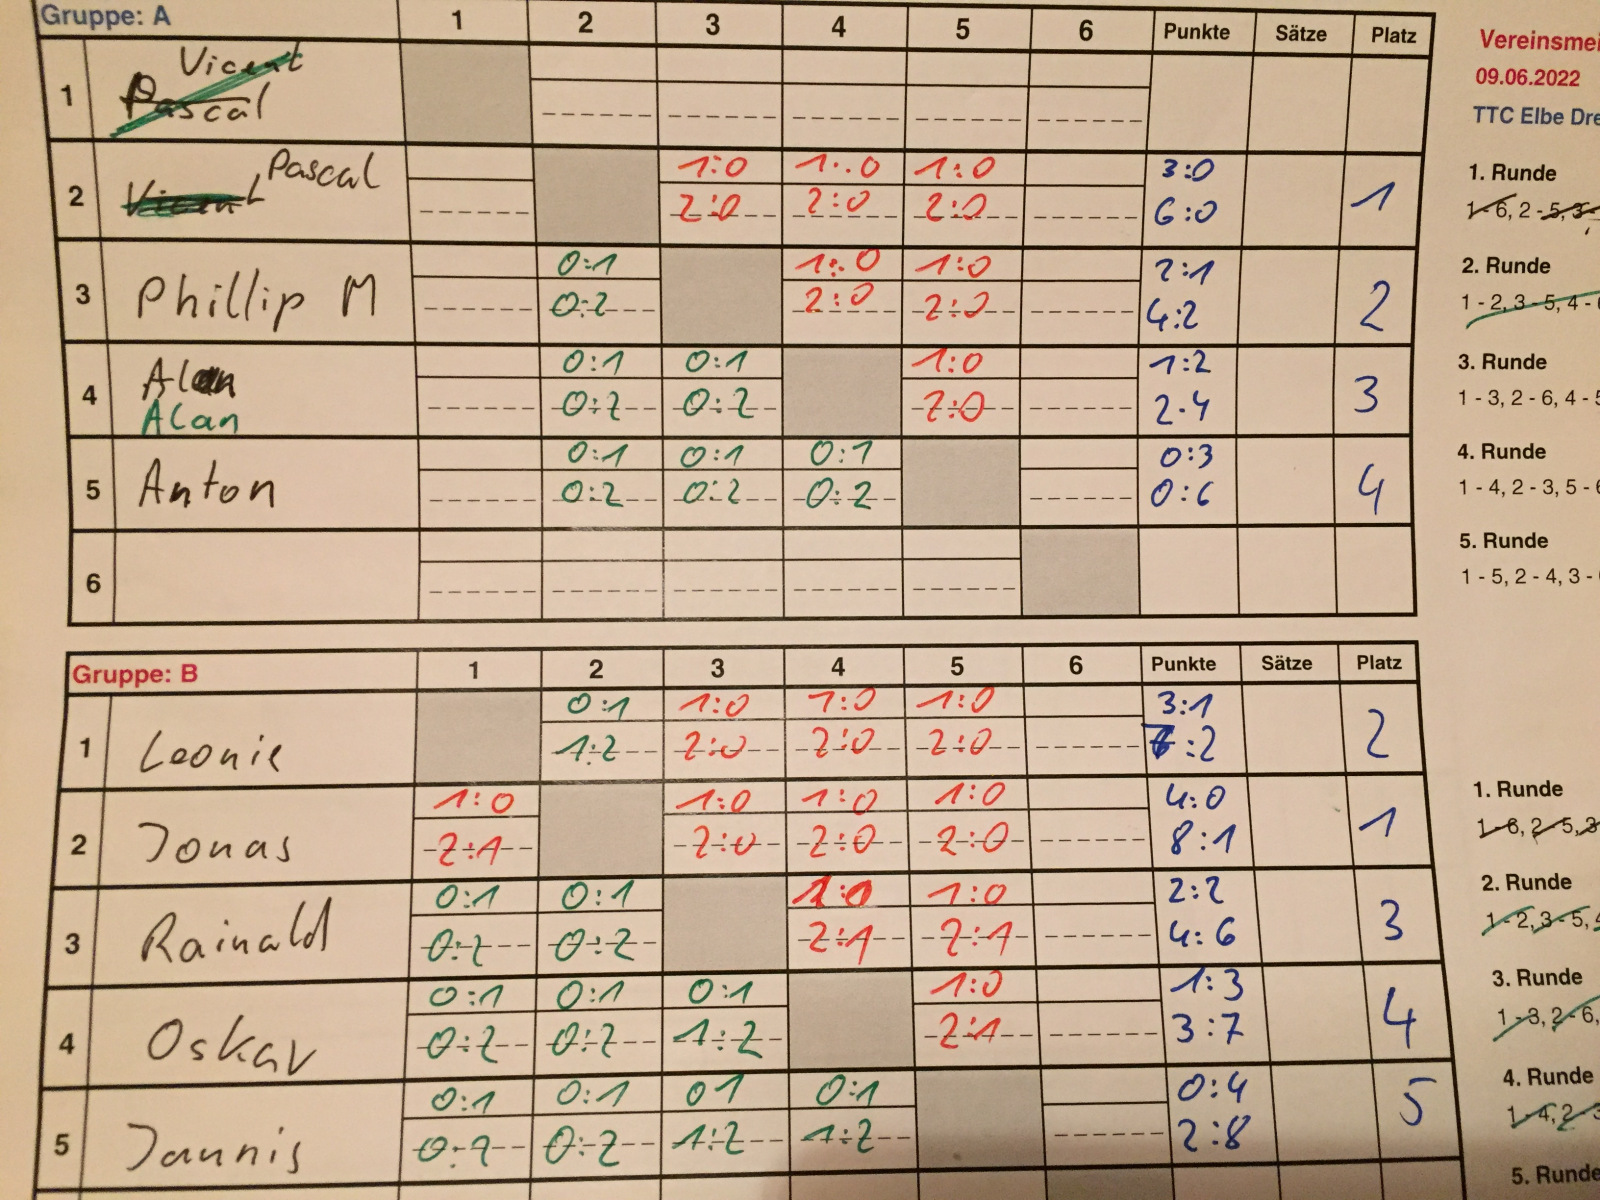 Gruppe: A 1 2 3 4 5 6 Punkte Sätze Platz
Vicent
1 Pascal
Pascal 1:0 1:0 1:0 3:0
2 Vicent 2:0 2:0 2:0 6:0 1
0:1 1:0 1:0 2:1
3 Phillip M 0:2 2:0 2:0 4:2 2
Alan 0:1 0:1 1:0 1:2
4 Alan 0:2 0:2 2:0 2.4 3
0:1 0:1 0:1 0:3
5 Anton 0:2 0:2 0:2 0:6 4
6
Vereinsmei
09.06.2022
TTC Elbe Dre
1. Runde
1 - 6, 2 - 5, 3 -
2. Runde
1 - 2, 3 - 5, 4 - 6
3. Runde
1 - 3, 2 - 6, 4 - 5
4. Runde
1 - 4, 2 - 3, 5 - 6
5. Runde
1 - 5, 2 - 4, 3 -
Gruppe: B 1 2 3 4 5 6 Punkte Sätze Platz
0:1 1:0 1:0 1:0 3:1
1 Leonie 1:2 2:0 2:0 2:0 7:2 2
1:0 1:0 1:0 1:0 4:0
2 Jonas 2:1 2:0 2:0 2:0 8:1 1
0:1 0:1 1:0 1:0 2:2
3 Rainald 0:2 0:2 2:1 2:1 4:6 3
0:1 0:1 0:1 1:0 1:3
4 Oskar 0:2 0:2 1:2 2:1 3:7 4
0:1 0:1 01 0:1 0:4
5 Jannis 0:2 0:2 1:2 1:2 2:8 5
1. Runde
1 - 6, 2 - 5, 3
2. Runde
1 - 2, 3 - 5, 4
3. Runde
1 - 3, 2 - 6,
4. Runde
1 - 4, 2 - 3
5. Runde